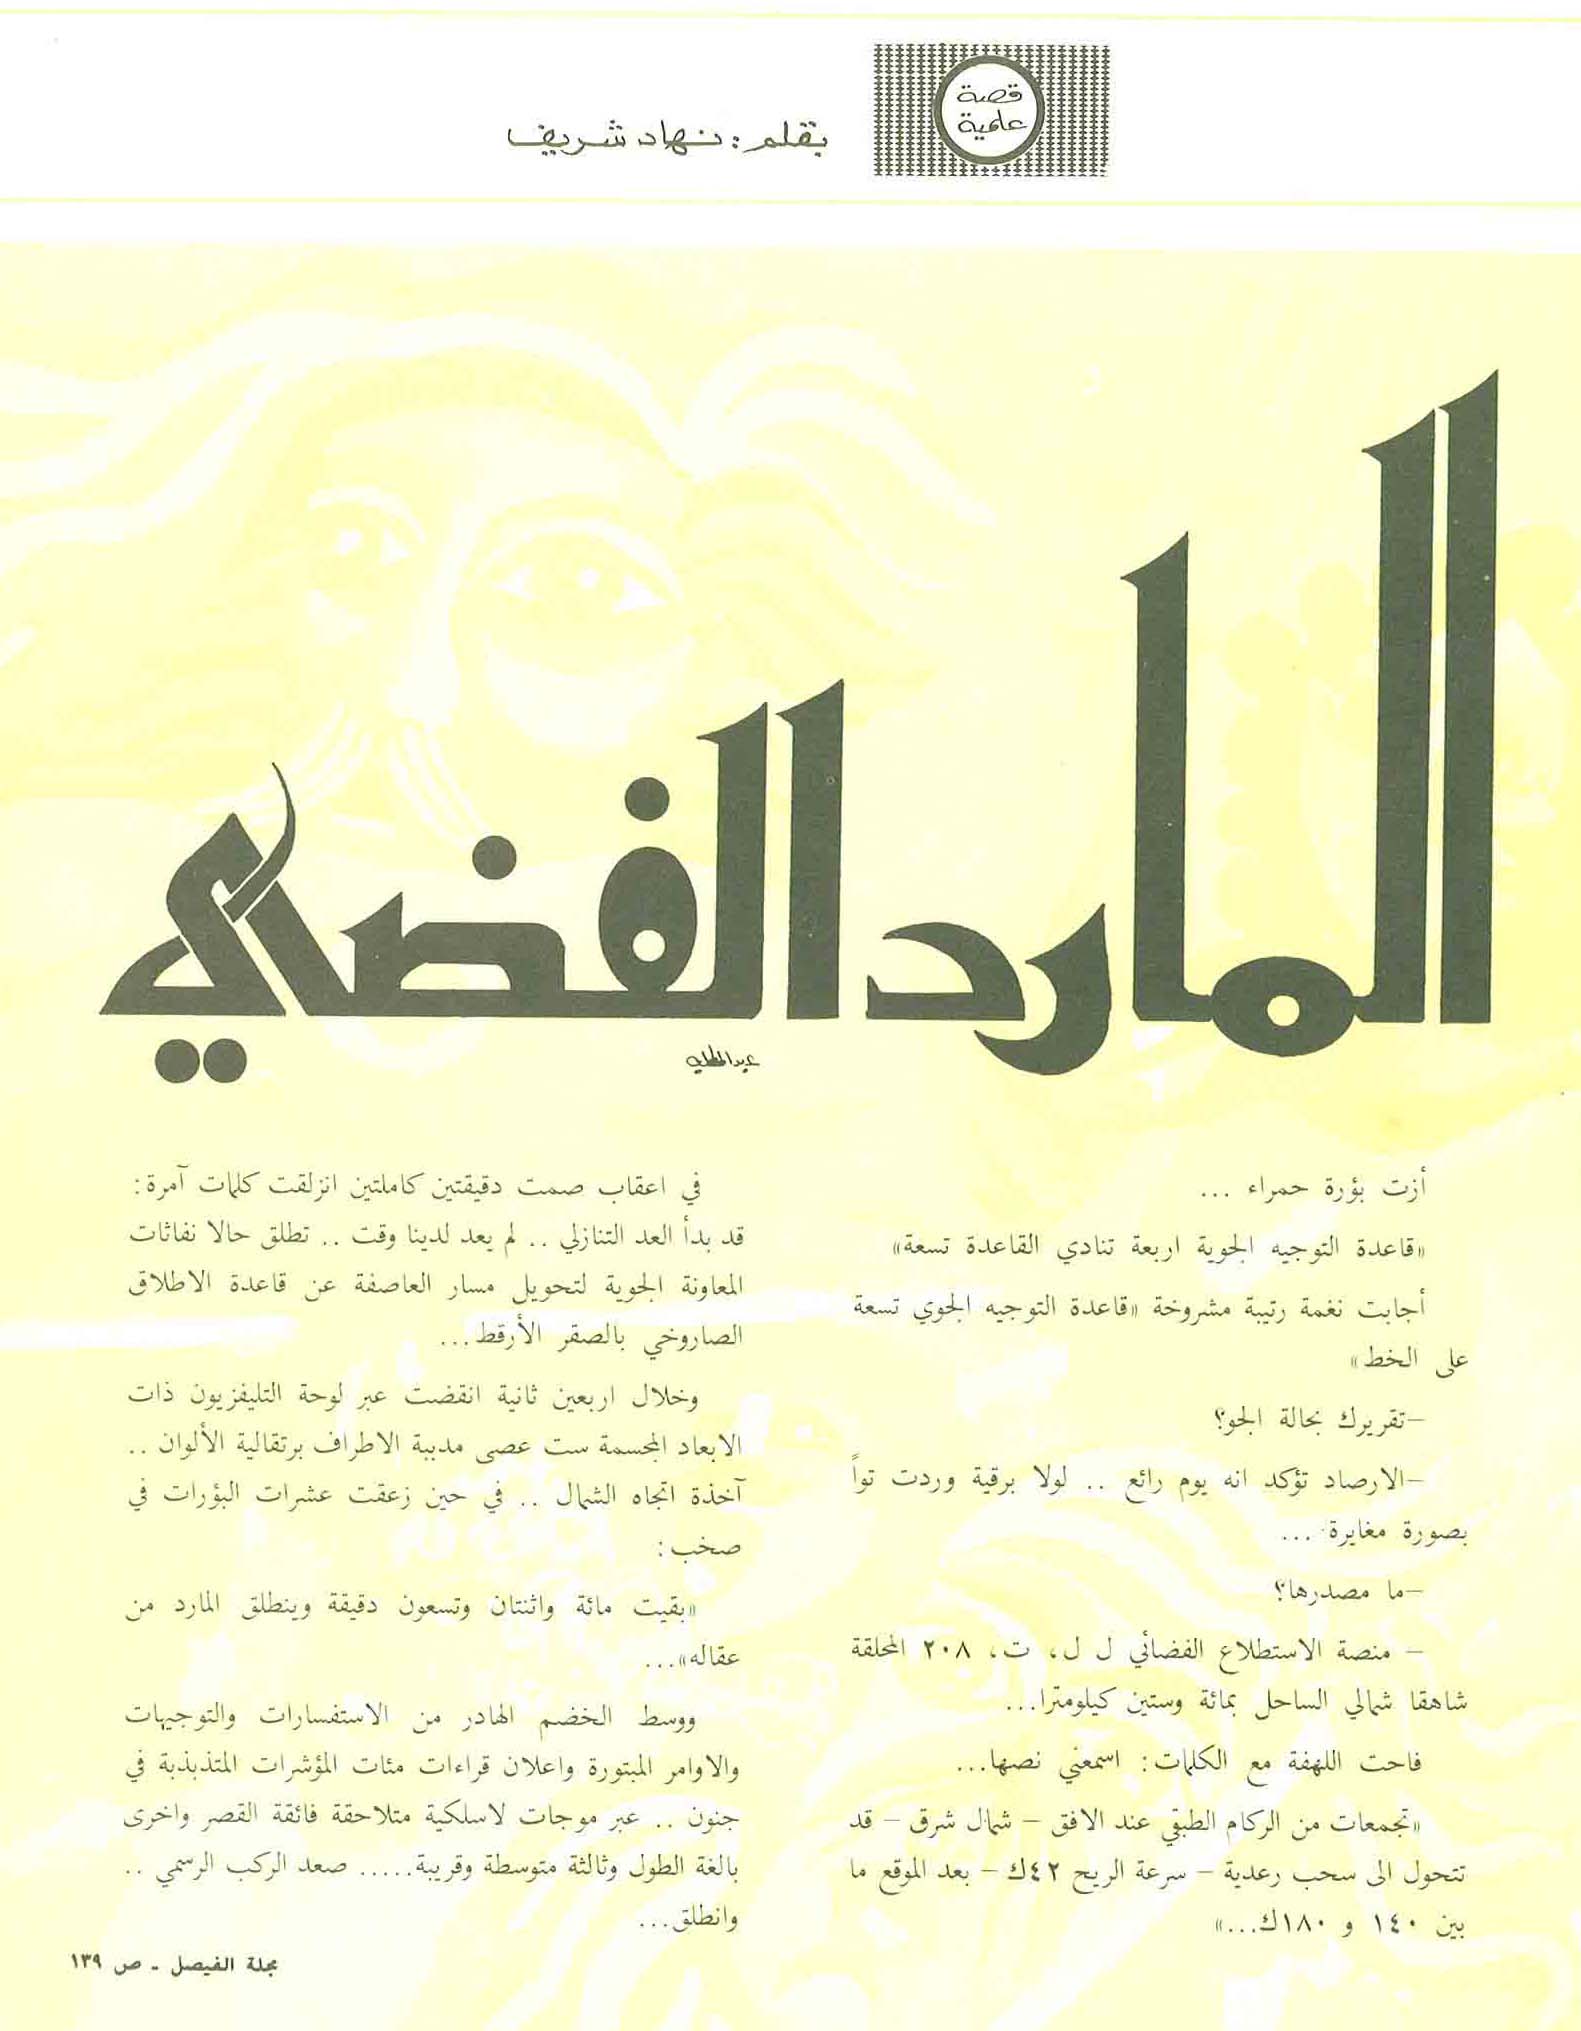 قصة
علمية
بقلم : نهاد شريف
المارد الفضي
أزت بؤرة حمراء ...
«قاعدة التوجيه الجوية اربعة تنادي القاعدة تسعة»
أجابت نغمة رتيبة مشروخة «قاعدة التوجيه الجوي تسعة
على الخط»
–تقريرك بحالة الجو؟
–الارصاد تؤكد انه يوم رائع .. لولا برقية وردت تواً
بصورة مغايرة ...
–ما مصدرها؟
– منصة الاستطلاع الفضائي ل ل، ت، ٢٠٨ المحلقة
شاهقا شمالي الساحل بمائة وستين كيلومترا...
فاحت اللهفة مع الكلمات : اسمعني نصها...
«تجمعات من الركام الطبقي عند الافق – شمال شرق – قد
تتحول الى سحب رعدية – سرعة الريح ٤٢ك – بعد الموقع ما
بين ١٤٠ و ١٨٠ك...»
في اعقاب صمت دقيقتين كاملتين انزلقت كلمات آمرة :
قد بدأ العد التنازلي .. لم يعد لدينا وقت .. تطلق حالا نفاثات
المعاونة الجوية لتحويل مسار العاصفة عن قاعدة الاطلاق
الصاروخي بالصقر الأرقط...
وخلال اربعين ثانية انقضت عبر لوحة التليفزيون ذات
الابعاد المجسمة ست عصى مدببة الاطراف برتقالية الألوان ..
آخذة اتجاه الشمال .. في حين زعقت عشرات البؤرات في
صخب :
«بقيت مائة واثنتان وتسعون دقيقة وينطلق المارد من
عقاله»...
ووسط الخضم الهادر من الاستفسارات والتوجيهات
والاوامر المبتورة واعلان قراءات مئات المؤشرات المتذبذبة في
جنون .. عبر موجات لاسلكية متلاحقة فائقة القصر واخرى
بالغة الطول وثالثة متوسطة وقريبة..... صعد الركب الرسمي ..
وانطلق...
مجلة الفيصل - ص ١٣٩